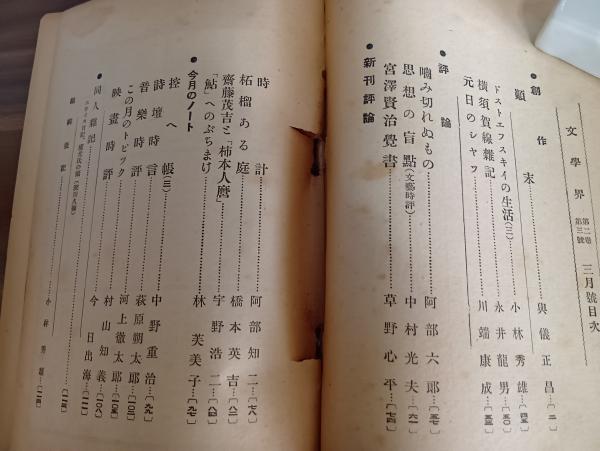 文學界 第二卷第三號 三月號目次
● 創作
顚末 與儀正昌…〔二〕
ドストエフスキイの生活(三) 小林秀雄…〔四五〕
横須賀線雜記 永井龍男…〔五〇〕
元日のシヤツ 川端康成…〔五三〕
● 評論
噛み切れぬもの 阿部六郎…〔五七〕
思想の盲點(文藝時評) 中村光夫…〔六一〕
宮澤賢治覺書 草野心平…〔七四〕
● 新刊評論
時計 阿部知二…〔七八〕
柘榴ある庭 橋本英吉…〔八二〕
齋藤茂吉と「柿本人麿」 宇野浩二…〔八四〕
「鮎」へのぶちまけ 林芙美子…〔九七〕
● 今月のノート
控へ帳(三) 中野重治…〔九九〕
詩壇時言 萩原朔太郎…〔一〇三〕
音樂時評 河上徹太郎…〔一〇五〕
この月のトピック
映畫時評 村山知義…〔一〇八〕
● 同人雜記 今日出海…〔一一一〕
編輯後記 小林秀雄…〔一一四〕